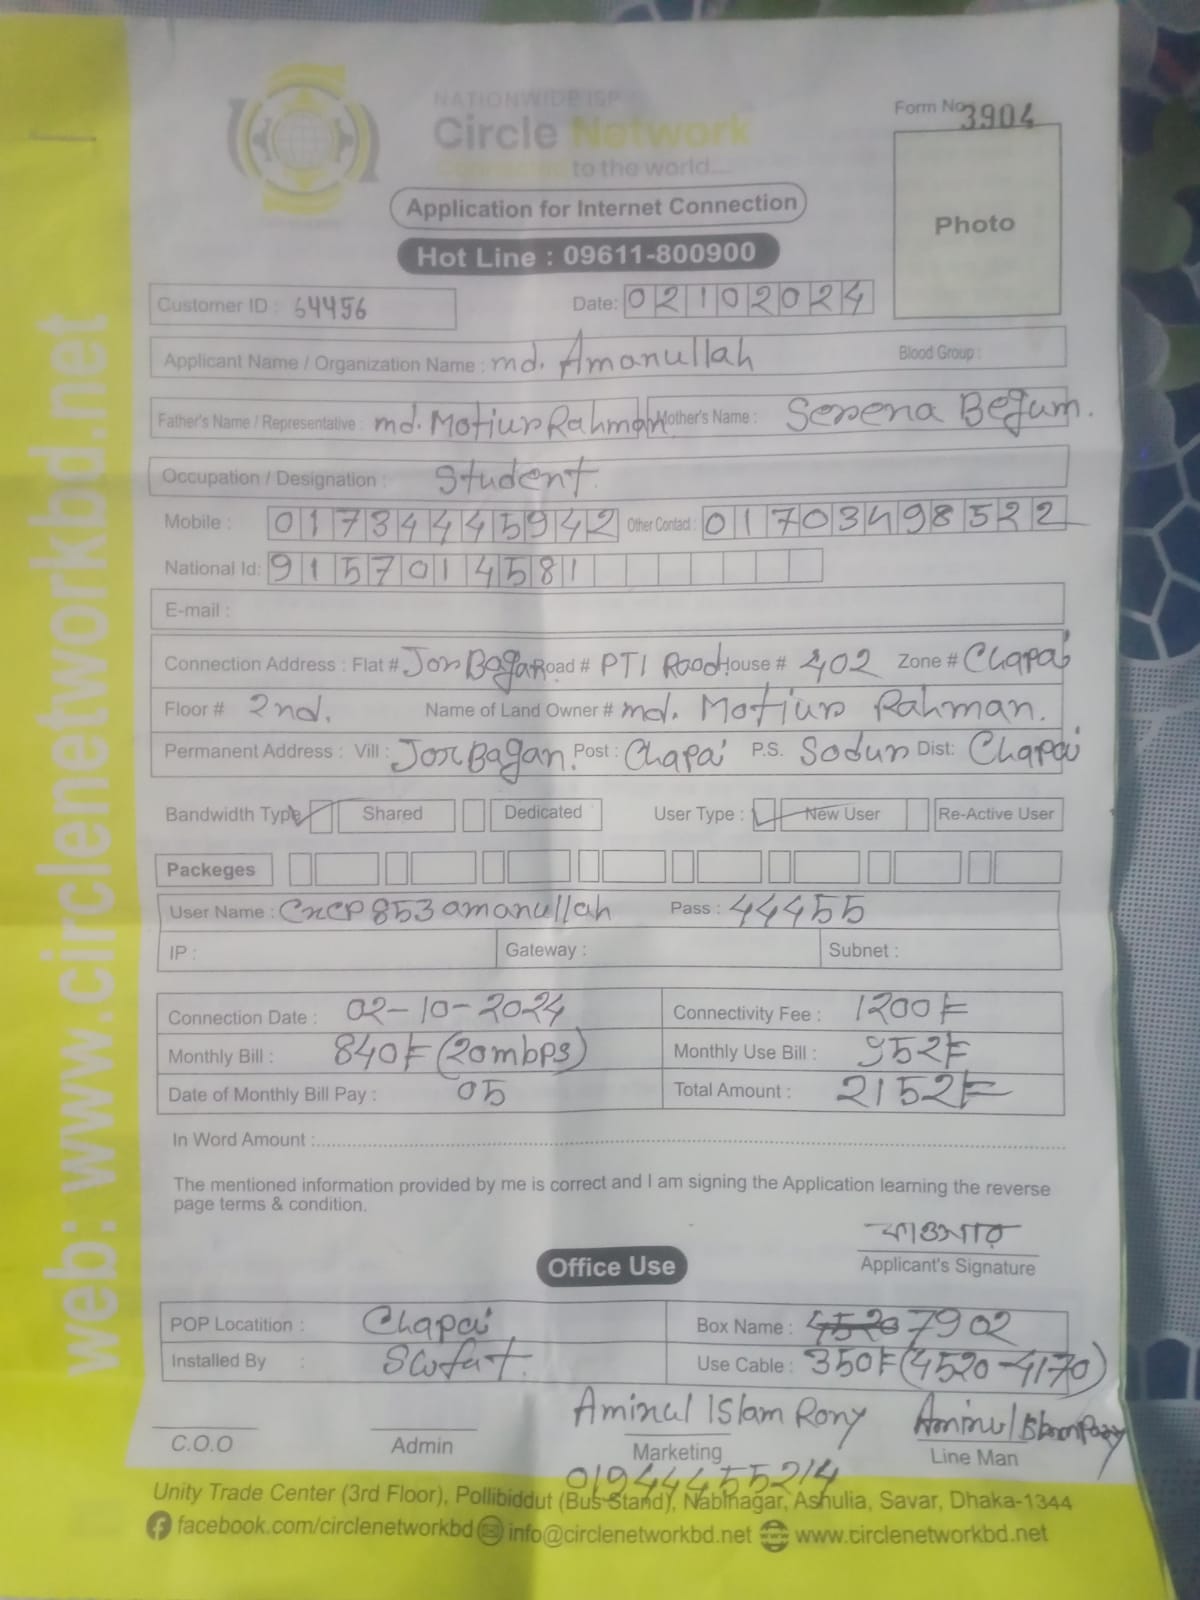 NATIONWIDE ISP
Circle Network
Connected to the world....
Form No. 3904
Photo
Application for Internet Connection
Hot Line : 09611-800900
Customer ID : 64456 Date: 02102024
Applicant Name / Organization Name : md. Amanullah Blood Group :
Father's Name / Representative : md. Motiur Rahman Mother's Name : Serena Begum.
Occupation / Designation : Student.
Mobile : 01734445942 Other Contact : 01703498522
National Id: 9157014581
E-mail :
Connection Address : Flat # JorBagan Road # PTI Road House # 402 Zone # Chapai
Floor # 2nd. Name of Land Owner # md. Motiur Rahman.
Permanent Address : Vill : JorBagan. Post : Chapai P.S. Sodur Dist: Chapai
Bandwidth Type Shared Dedicated User Type : New User Re-Active User
Packeges
User Name : CnCP853amanullah Pass : 44455
IP : Gateway : Subnet :
Connection Date : 02-10-2024 Connectivity Fee : 1200/=
Monthly Bill : 840/= (20mbps) Monthly Use Bill : 952/=
Date of Monthly Bill Pay : 05 Total Amount : 2152/=
In Word Amount :
The mentioned information provided by me is correct and I am signing the Application learning the reverse
page terms & condition.
Applicant's Signature
Office Use
POP Locatition : Chapai Box Name : 7902
Installed By : Use Cable : 350/= (4520-4170)
Aminul Islam Rony
C.O.O Admin Marketing Line Man
01944455214
Unity Trade Center (3rd Floor), Pollibiddut (Bus Stand), Nabinagar, Ashulia, Savar, Dhaka-1344
facebook.com/circlenetworkbd info@circlenetworkbd.net www.circlenetworkbd.net
web: www.circlenetworkbd.net